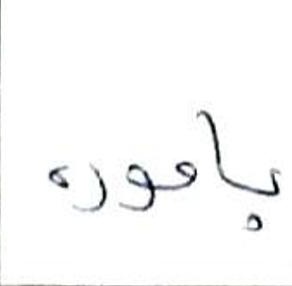 باموره